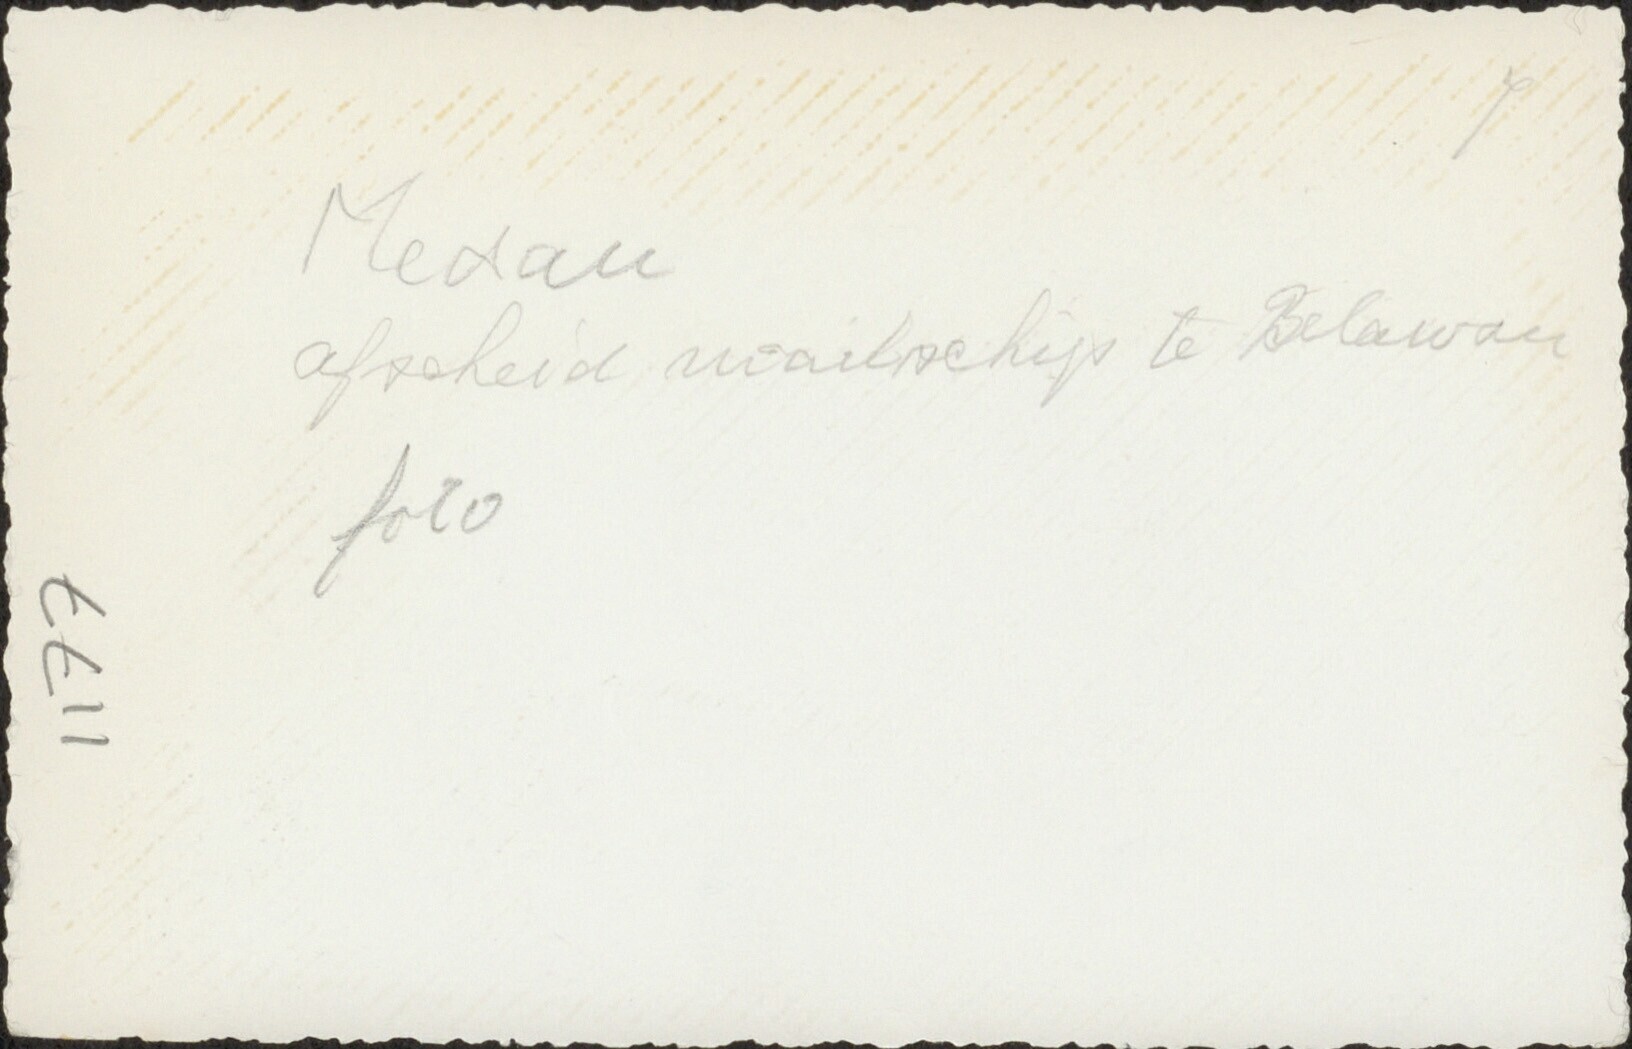 Medan
afscheid mailschip te Belawan
foto
1177